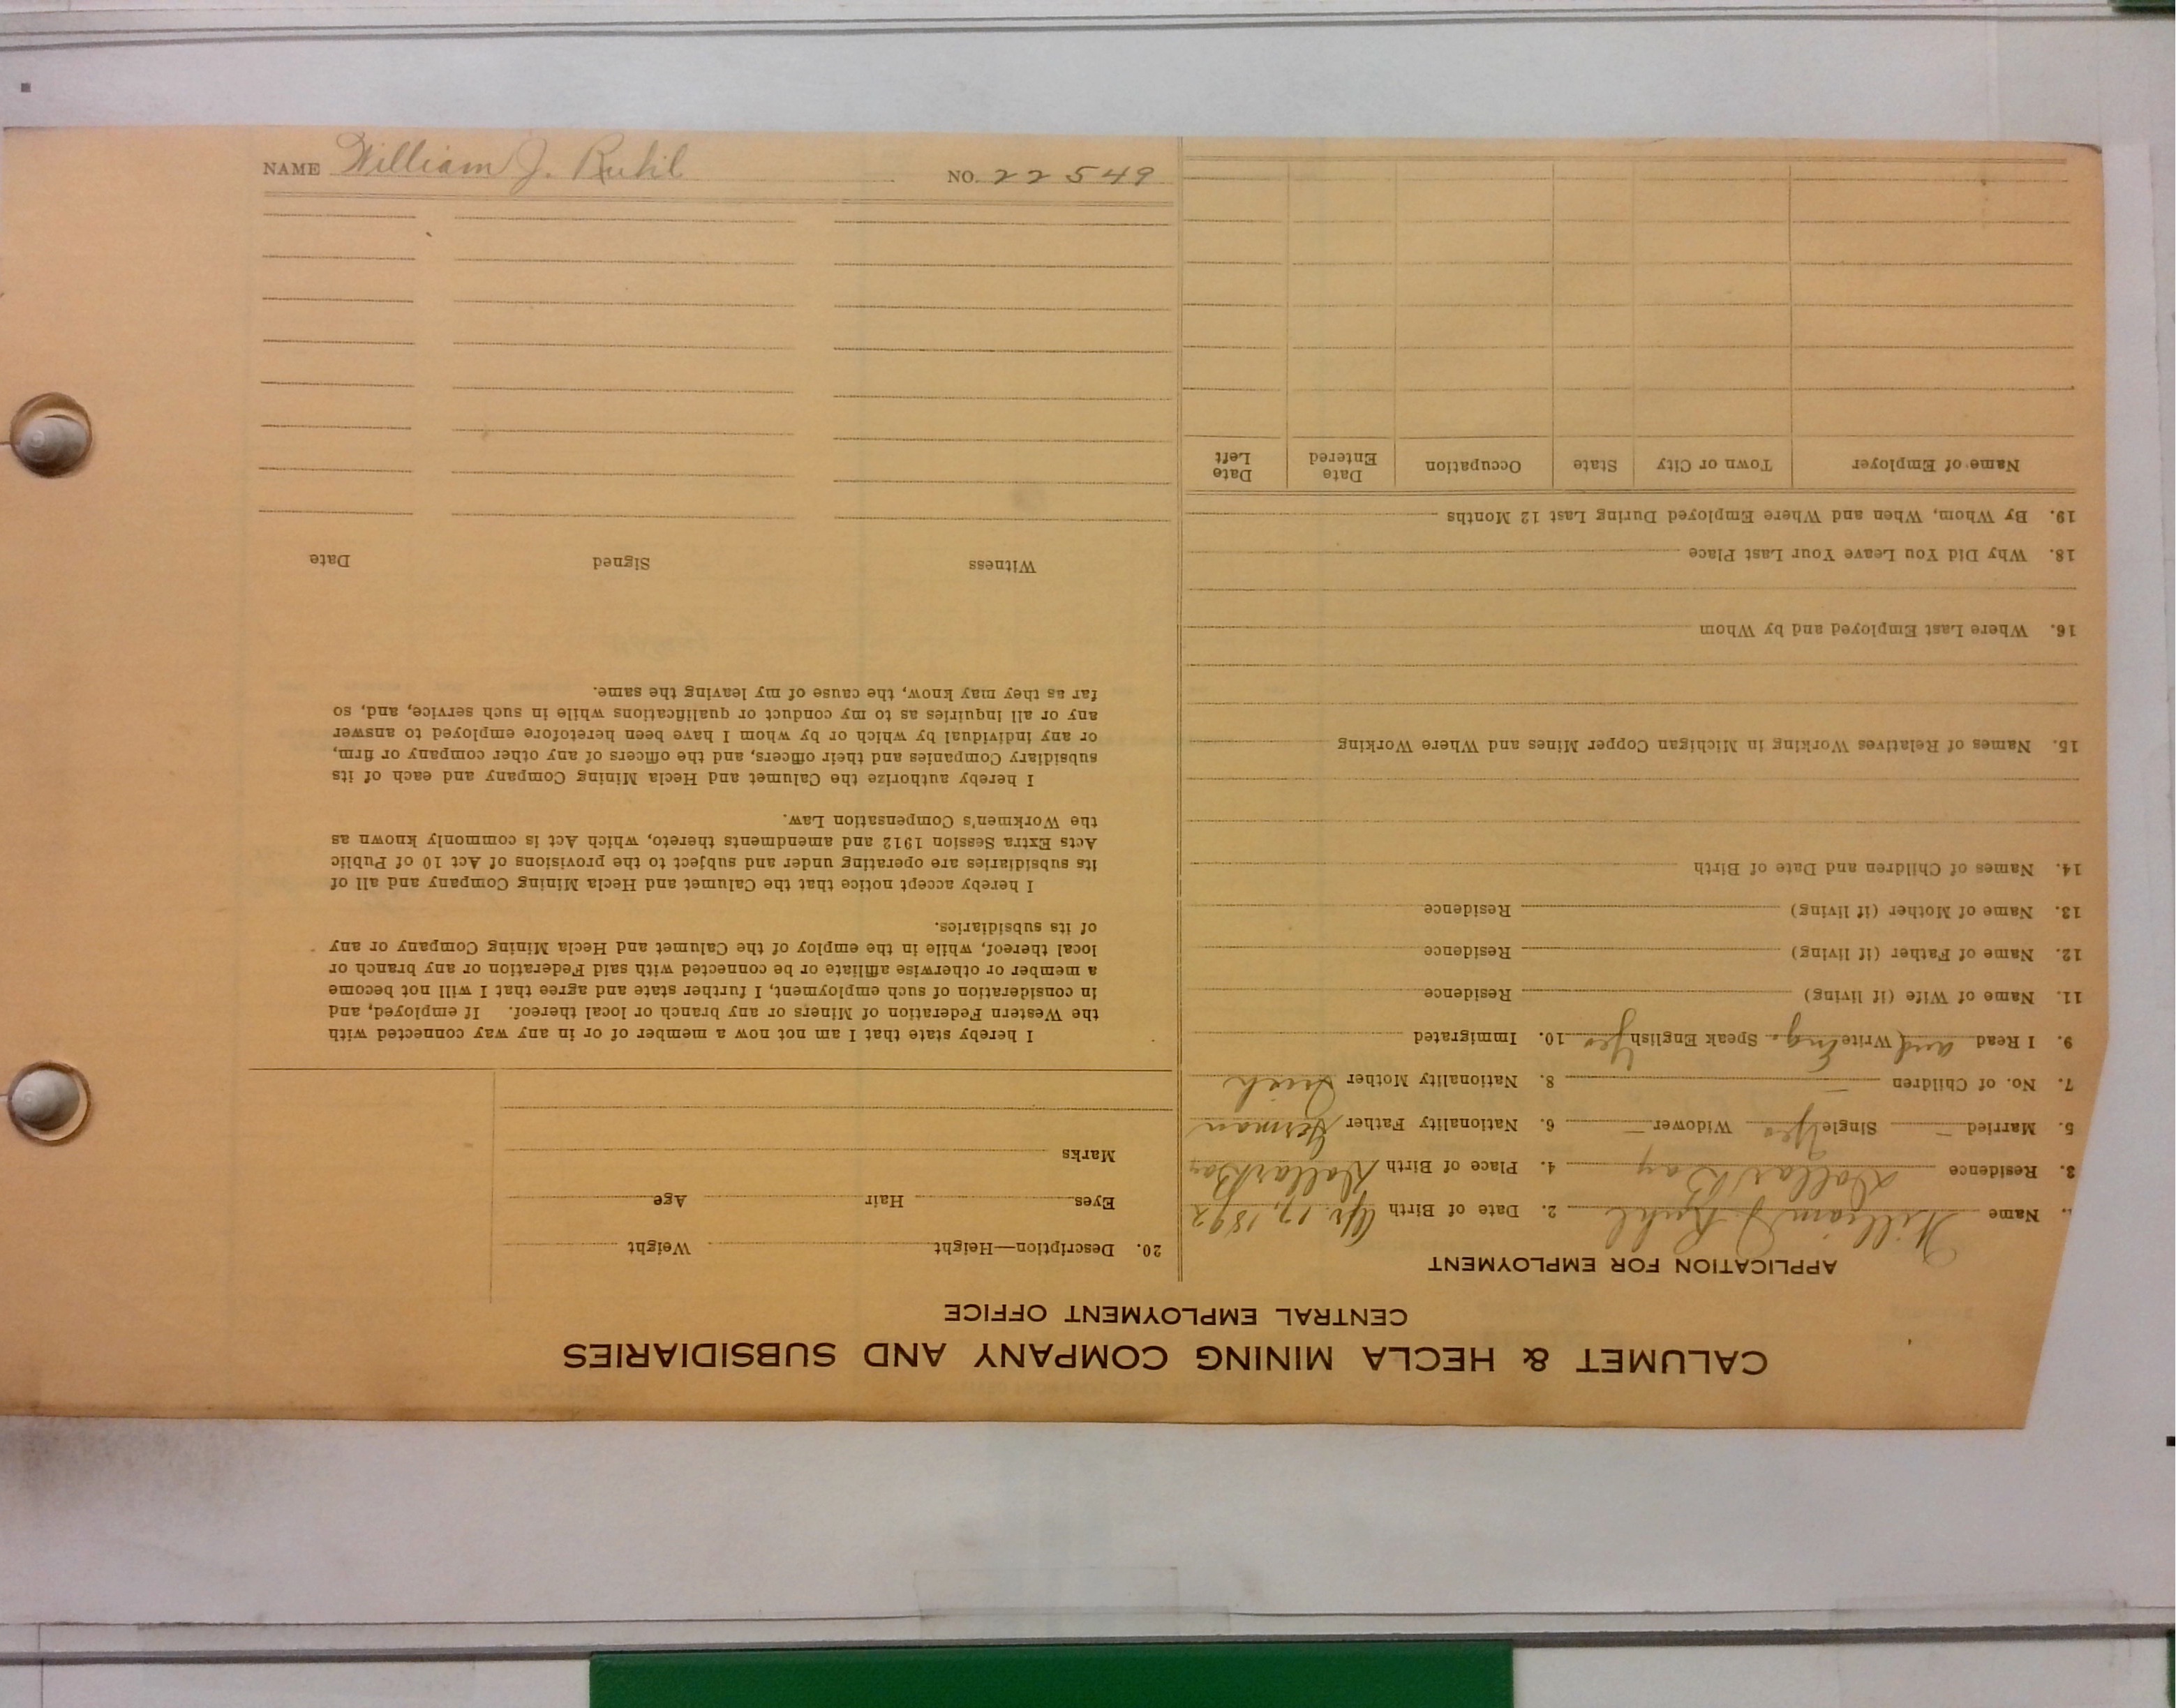 NAME William J. Ruhl NO. 22549
CALUMET & HECLA MINING COMPANY AND SUBSIDIARIES
CENTRAL EMPLOYMENT OFFICE
APPLICATION FOR EMPLOYMENT
Name William J. Ruhl 2. Date of Birth Apr. 17, 1892
3. Residence Dollar Bay 4. Place of Birth Dollar Bay
5. Married — Single Yes Widower — 6. Nationality Father German
7. No. of Children — 8. Nationality Mother Irish
9. I Read and Write Eng. Speak English Yes 10. Immigrated
11. Name of Wife (if living) Residence
12. Name of Father (if living) Residence
13. Name of Mother (if living) Residence
14. Names of Children and Date of Birth
15. Names of Relatives Working in Michigan Copper Mines and Where Working
16. Where Last Employed and by Whom
18. Why Did You Leave Your Last Place
19. By Whom, When and Where Employed During Last 12 Months
Name of Employer Town or City State Occupation Date Entered Date Left
20. Description—Height Weight
Eyes Hair Age
Marks
I hereby state that I am not now a member of or in any way connected with
the Western Federation of Miners or any branch or local thereof. If employed, and
in consideration of such employment, I further state and agree that I will not become
a member or otherwise affiliate or be connected with said Federation or any branch or
local thereof, while in the employ of the Calumet and Hecla Mining Company or any
of its subsidiaries.
I hereby accept notice that the Calumet and Hecla Mining Company and all of
its subsidiaries are operating under and subject to the provisions of Act 10 of Public
Acts Extra Session 1912 and amendments thereto, which Act is commonly known as
the Workmen's Compensation Law.
I hereby authorize the Calumet and Hecla Mining Company and each of its
subsidiary Companies and their officers, and the officers of any other company or firm,
or any individual by which or by whom I have been heretofore employed to answer
any or all inquiries as to my conduct or qualifications while in such service, and, so
far as they may know, the cause of my leaving the same.
Witness Signed Date